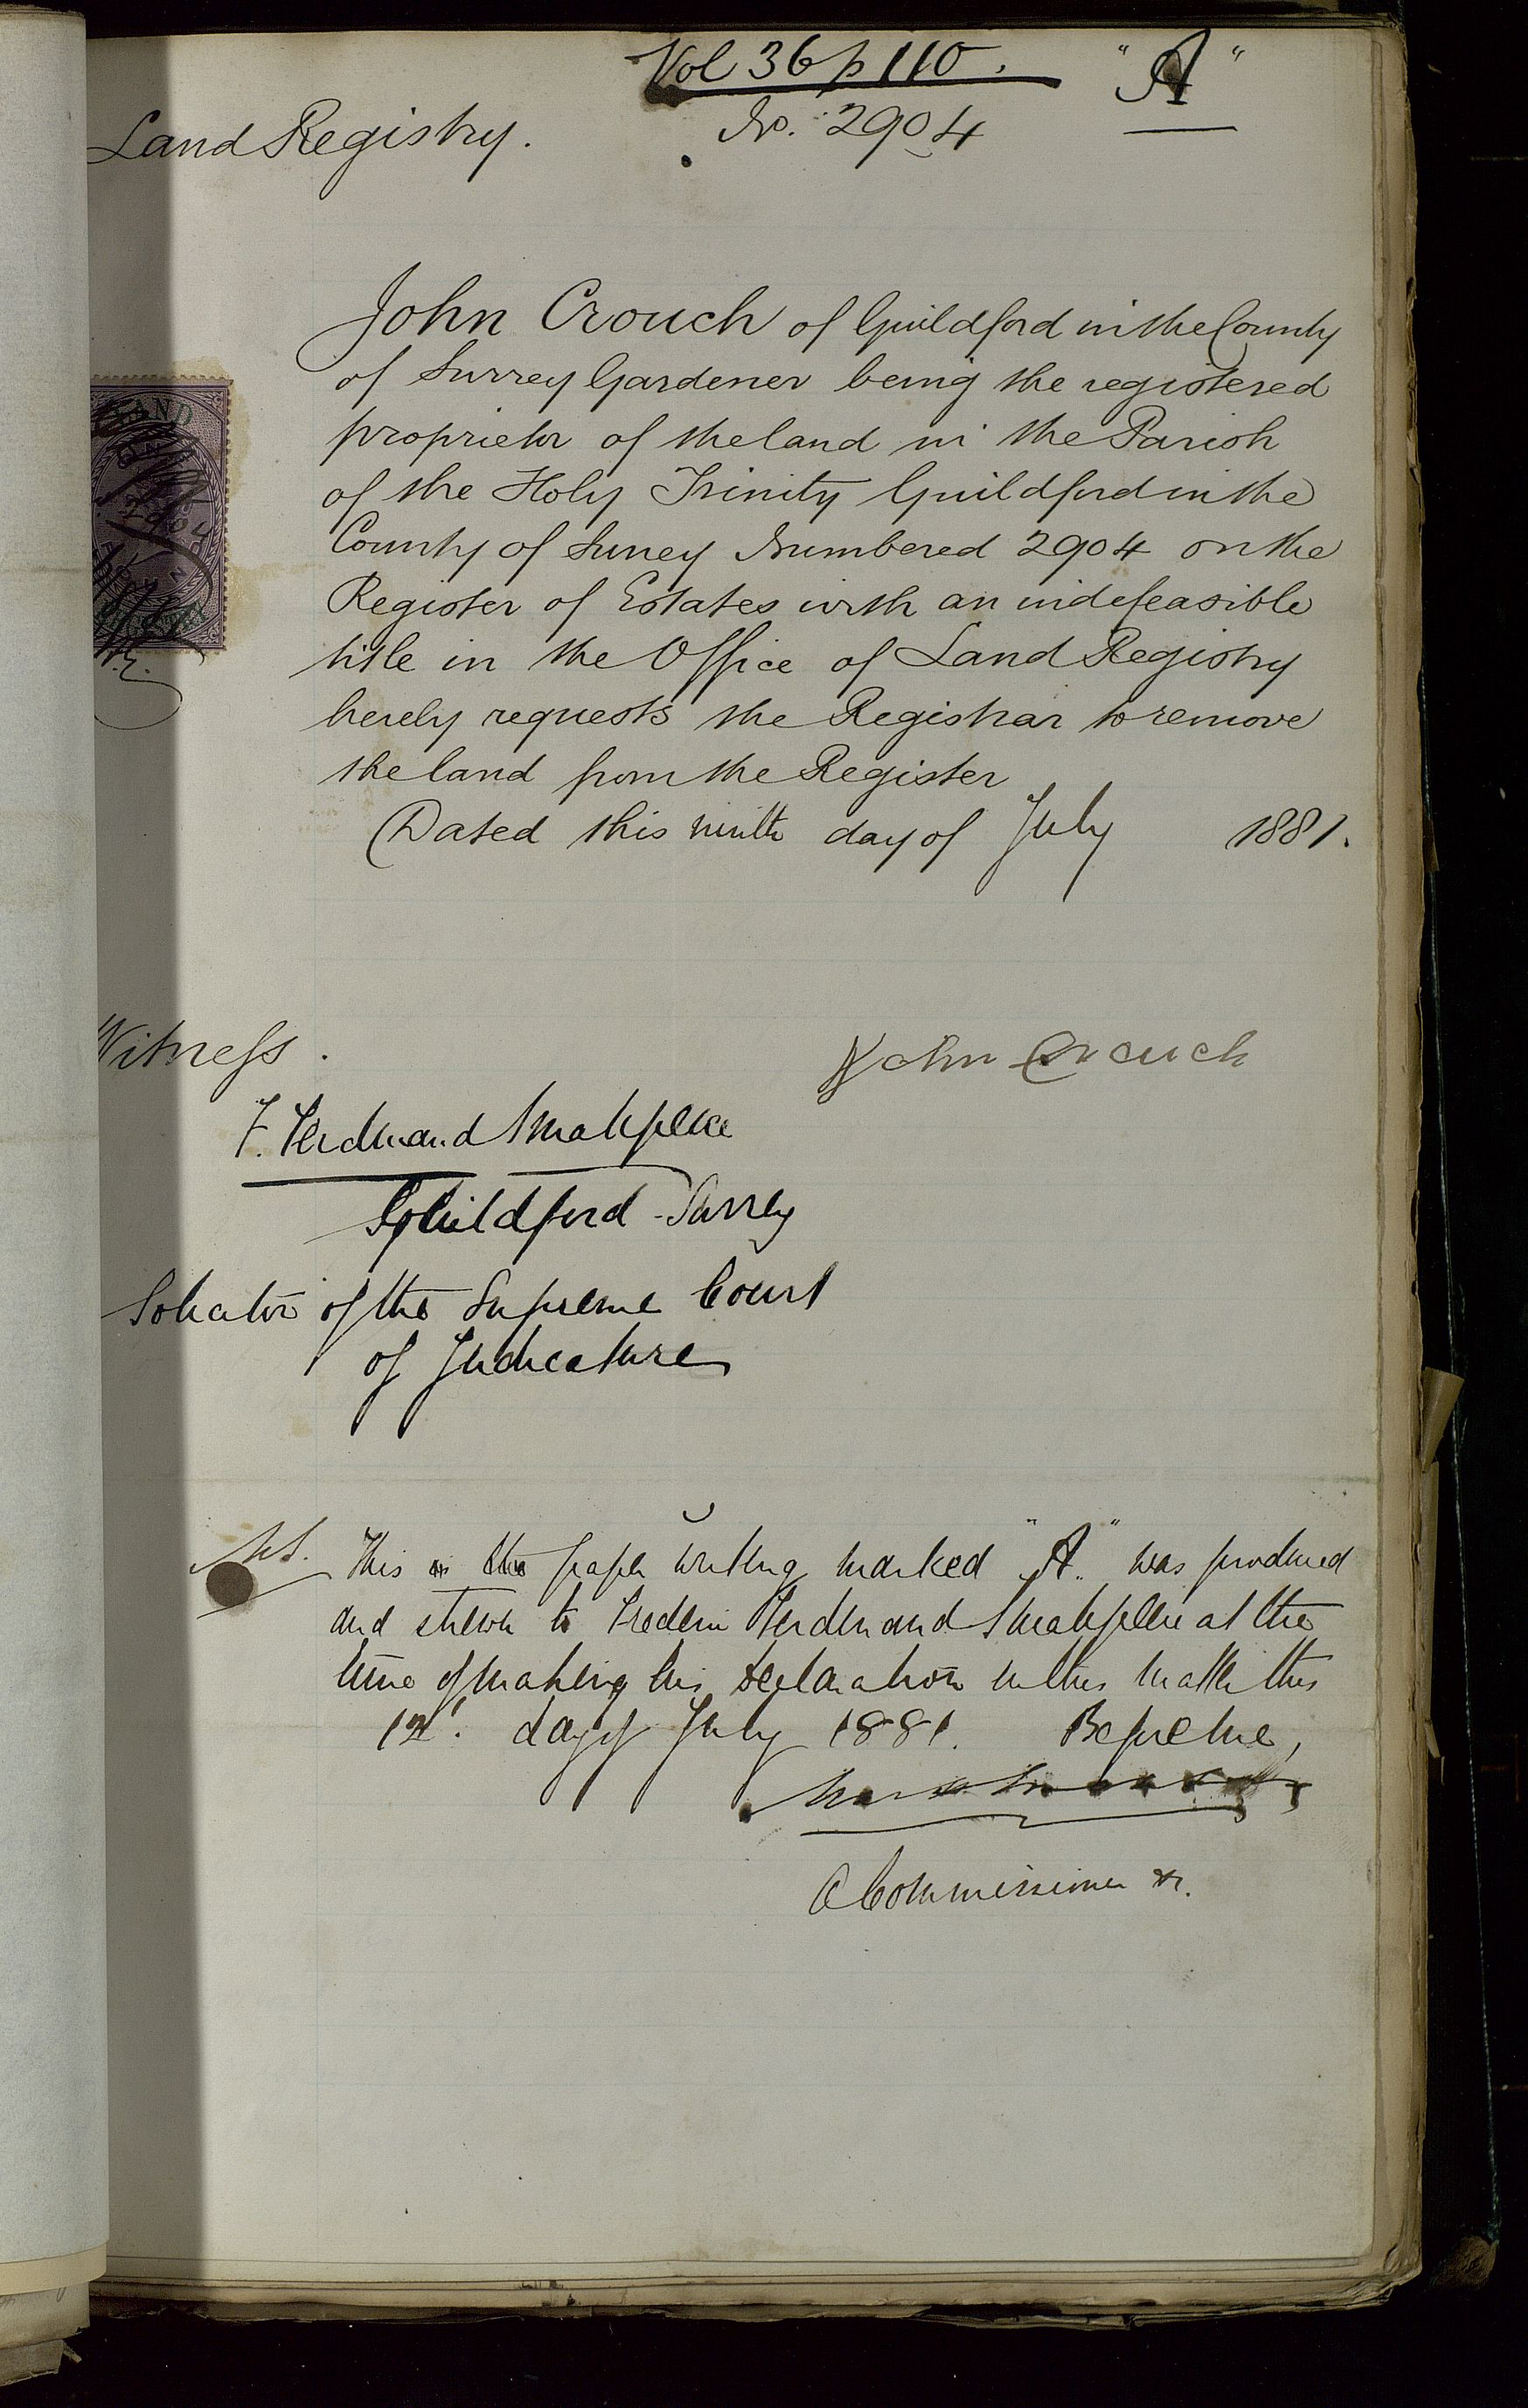 Vol 36 p 110.
"A"
Land Registry.
No. 2904
John Crouch of Guildford in the County
of Surrey Gardener being the registered
proprietor of the land in the Parish
of the Holy Trinity Guildford in the
County of Surrey Numbered 2904 on the
Register of Estates with an indefeasible
title in the Office of Land Registry
hereby requests the Registrar to remove
the land from the Register
Dated this ninth day of July 1881.
LAND
2904
Witness.
John Crouch
F. Ferdinand Smallpeice
Guildford - Surrey
Solicitor of the Supreme Court
of Judicature
This is the paper writing marked "A" was produced
and shewn to Frederic Ferdinand Smallpeice at the
time of making his declaration in this matter this
12th. day of July 1881. Before me,
A Commissioner &c.